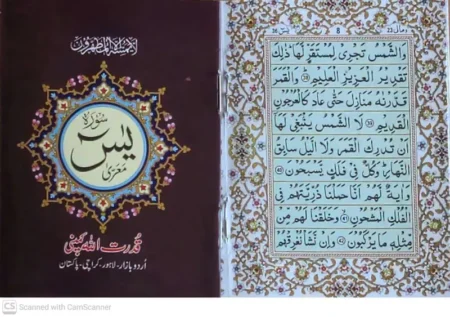 لا يمسه الا المطهرون
سورۃ
يٰسٓ
معرّیٰ
قدرت اللہ کمپنی
اُردو بازار، لاہور، کراچی، پاکستان
يٰسٓ 36
8
ومالی 23
وَالشَّمْسُ تَجْرِيْ لِمُسْتَقَرٍّ لَّهَا ؕ ذٰلِكَ
تَقْدِيْرُ الْعَزِيْزِ الْعَلِيْمِ ﴿38﴾ وَالْقَمَرَ
قَدَّرْنٰهُ مَنَازِلَ حَتّٰى عَادَ كَالْعُرْجُوْنِ
الْقَدِيْمِ ﴿39﴾ لَا الشَّمْسُ يَنْۢبَغِيْ لَهَاۤ
اَنْ تُدْرِكَ الْقَمَرَ وَلَا الَّيْلُ سَابِقُ
النَّهَارِ ؕ وَكُلٌّ فِيْ فَلَكٍ يَّسْبَحُوْنَ ﴿40﴾
وَاٰيَةٌ لَّهُمْ اَنَّا حَمَلْنَا ذُرِّيَّتَهُمْ فِي
الْفُلْكِ الْمَشْحُوْنِ ﴿41﴾ وَخَلَقْنَا لَهُمْ مِّنْ
مِّثْلِهٖ مَا يَرْكَبُوْنَ ﴿42﴾ وَاِنْ نَّشَاْ نُغْرِقْهُمْ
CS Scanned with CamScanner